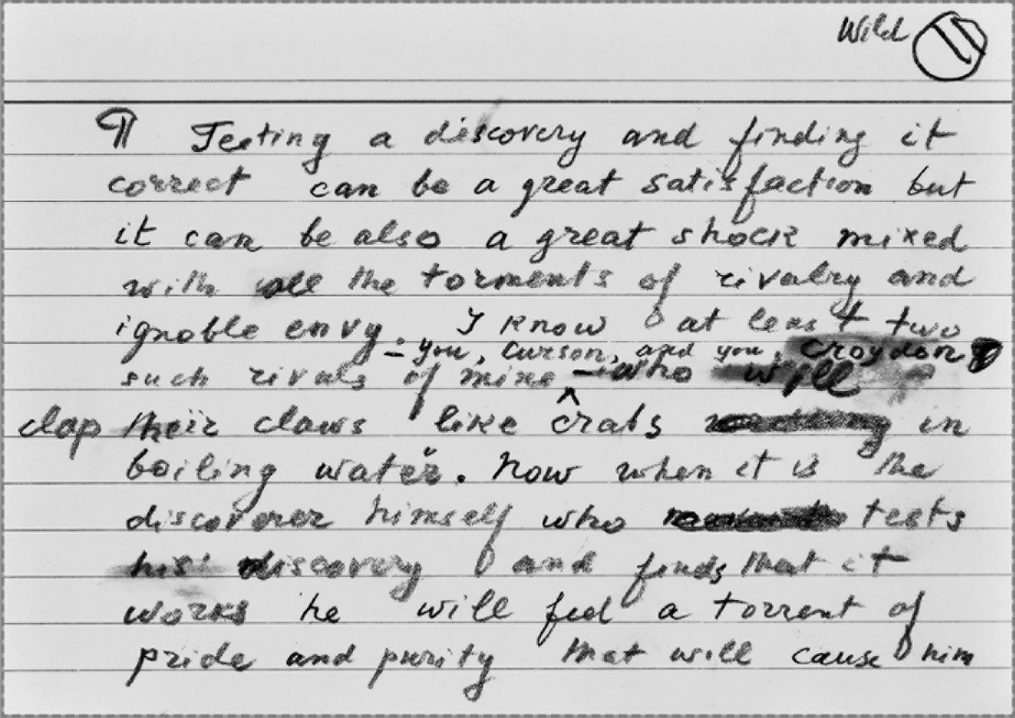 Wild
¶ Testing a discovery and finding it
correct can be a great satisfaction but
it can be also a great shock mixed
with all the torments of rivalry and
ignoble envy. I know of at least two
– you, Curson, and you, Croydon,
such rivals of mine – who will
clap their claws like crabs in
boiling water. Now when it is the
discoverer himself who tests
his discovery and finds that it
works he will feel a torrent of
pride and purity that will cause him